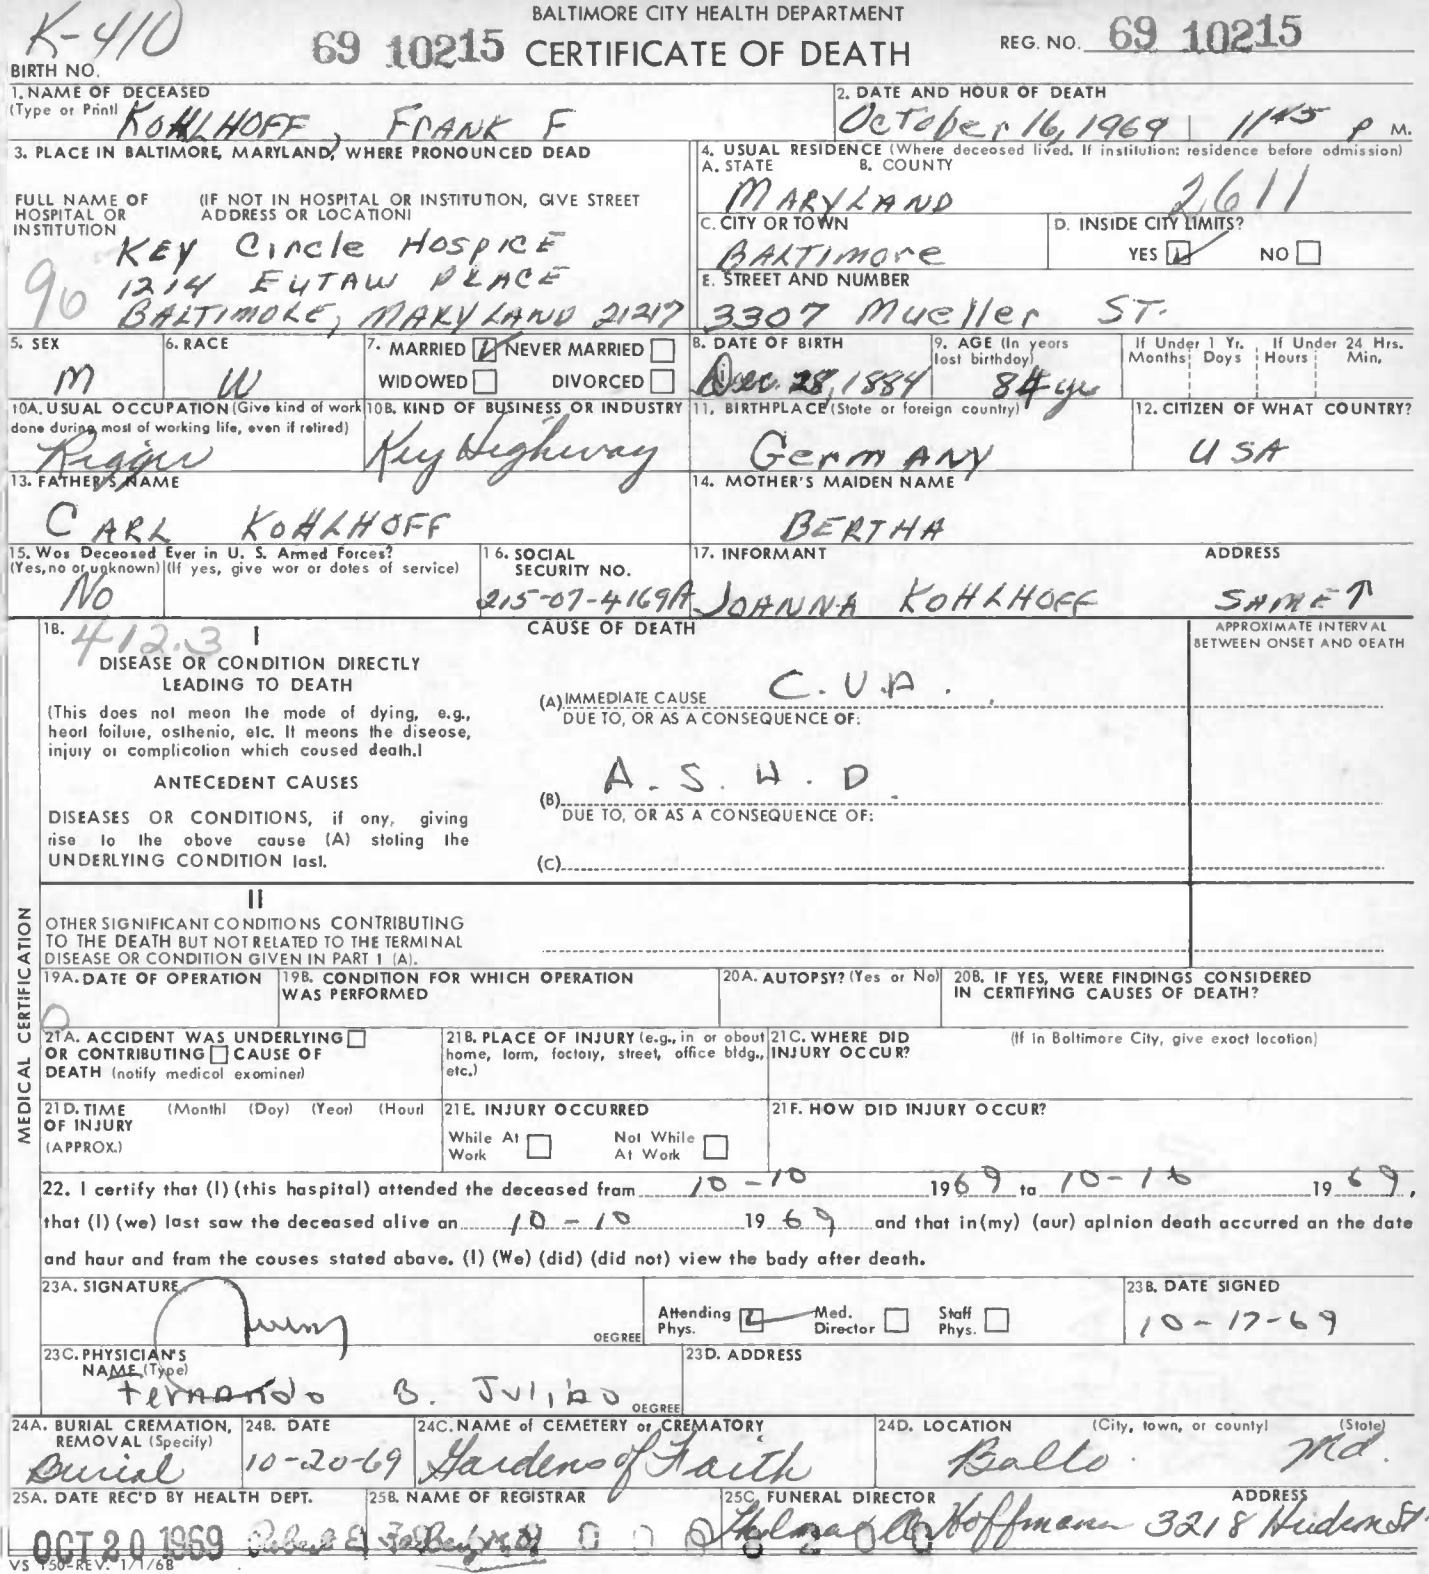 K-410
BALTIMORE CITY HEALTH DEPARTMENT
69 10215 CERTIFICATE OF DEATH REG. NO. 69 10215
BIRTH NO.
1. NAME OF DECEASED
(Type or Print) KOHLHOFF, FRANK F
2. DATE AND HOUR OF DEATH
October 16, 1969 11:45 P M.
3. PLACE IN BALTIMORE, MARYLAND, WHERE PRONOUNCED DEAD
FULL NAME OF HOSPITAL OR INSTITUTION
(IF NOT IN HOSPITAL OR INSTITUTION, GIVE STREET ADDRESS OR LOCATION)
KEY Circle HOSPICE
1214 EUTAW PLACE
BALTIMORE, MARYLAND 21217
90
4. USUAL RESIDENCE (Where deceased lived. If institution: residence before admission)
A. STATE B. COUNTY
MARYLAND 2611
C. CITY OR TOWN D. INSIDE CITY LIMITS?
BALTIMORE YES NO
E. STREET AND NUMBER
3307 Mueller ST.
5. SEX
M
6. RACE
W
7. MARRIED NEVER MARRIED
WIDOWED DIVORCED
8. DATE OF BIRTH
Dec. 28, 1884
9. AGE (In years last birthday)
84 yrs
If Under 1 Yr. If Under 24 Hrs.
Months Days Hours Min.
10A. USUAL OCCUPATION (Give kind of work done during most of working life, even if retired)
Rigger
10B. KIND OF BUSINESS OR INDUSTRY
Key Highway
11. BIRTHPLACE (State or foreign country)
GermANY
12. CITIZEN OF WHAT COUNTRY?
USA
13. FATHER'S NAME
CARL KOHLHOFF
14. MOTHER'S MAIDEN NAME
BERTHA
15. Was Deceased Ever in U. S. Armed Forces?
(Yes, no or unknown) (If yes, give war or dates of service)
No
16. SOCIAL SECURITY NO.
215-07-4169A
17. INFORMANT ADDRESS
JOANNA KOHLHOFF SAME ↑
18. 412.3 I
DISEASE OR CONDITION DIRECTLY
LEADING TO DEATH
(This does not mean the mode of dying, e.g.,
heart failure, asthenia, etc. It means the disease,
injury or complication which caused death.)
ANTECEDENT CAUSES
DISEASES OR CONDITIONS, if any, giving
rise to the above cause (A) stating the
UNDERLYING CONDITION last.
CAUSE OF DEATH
APPROXIMATE INTERVAL
BETWEEN ONSET AND DEATH
(A) IMMEDIATE CAUSE C.V.A.
DUE TO, OR AS A CONSEQUENCE OF:
(B) A.S.H.D.
DUE TO, OR AS A CONSEQUENCE OF:
(C)
II
OTHER SIGNIFICANT CONDITIONS CONTRIBUTING
TO THE DEATH BUT NOT RELATED TO THE TERMINAL
DISEASE OR CONDITION GIVEN IN PART 1 (A).
MEDICAL CERTIFICATION
19A. DATE OF OPERATION
0
19B. CONDITION FOR WHICH OPERATION WAS PERFORMED
20A. AUTOPSY? (Yes or No)
20B. IF YES, WERE FINDINGS CONSIDERED IN CERTIFYING CAUSES OF DEATH?
21A. ACCIDENT WAS UNDERLYING
OR CONTRIBUTING CAUSE OF
DEATH (notify medical examiner)
21B. PLACE OF INJURY (e.g., in or about
home, farm, factory, street, office bldg.,
etc.)
21C. WHERE DID INJURY OCCUR? (If in Baltimore City, give exact location)
21D. TIME OF INJURY (APPROX.) (Month) (Day) (Year) (Hour)
21E. INJURY OCCURRED
While At Work Not While At Work
21F. HOW DID INJURY OCCUR?
22. I certify that (I) (this hospital) attended the deceased from 10-10 1969 to 10-16 1969,
that (I) (we) last saw the deceased alive on 10-10 1969 and that in (my) (our) opinion death occurred on the date
and hour and from the causes stated above. (I) (We) (did) (did not) view the body after death.
23A. SIGNATURE
DEGREE
Attending Phys. Med. Director Staff Phys.
23B. DATE SIGNED
10-17-69
23C. PHYSICIAN'S NAME (Type)
Fernando B. DEGREE
23D. ADDRESS
24A. BURIAL CREMATION, REMOVAL (Specify)
Burial
24B. DATE
10-20-69
24C. NAME of CEMETERY or CREMATORY
Gardens of Faith
24D. LOCATION (City, town, or county) (State)
Balto. Md.
25A. DATE REC'D BY HEALTH DEPT.
OCT 20 1969
25B. NAME OF REGISTRAR
Robert E.
25C. FUNERAL DIRECTOR ADDRESS
Hoffmann 3218 Hudson St.
VS 150-REV. 1/1/68